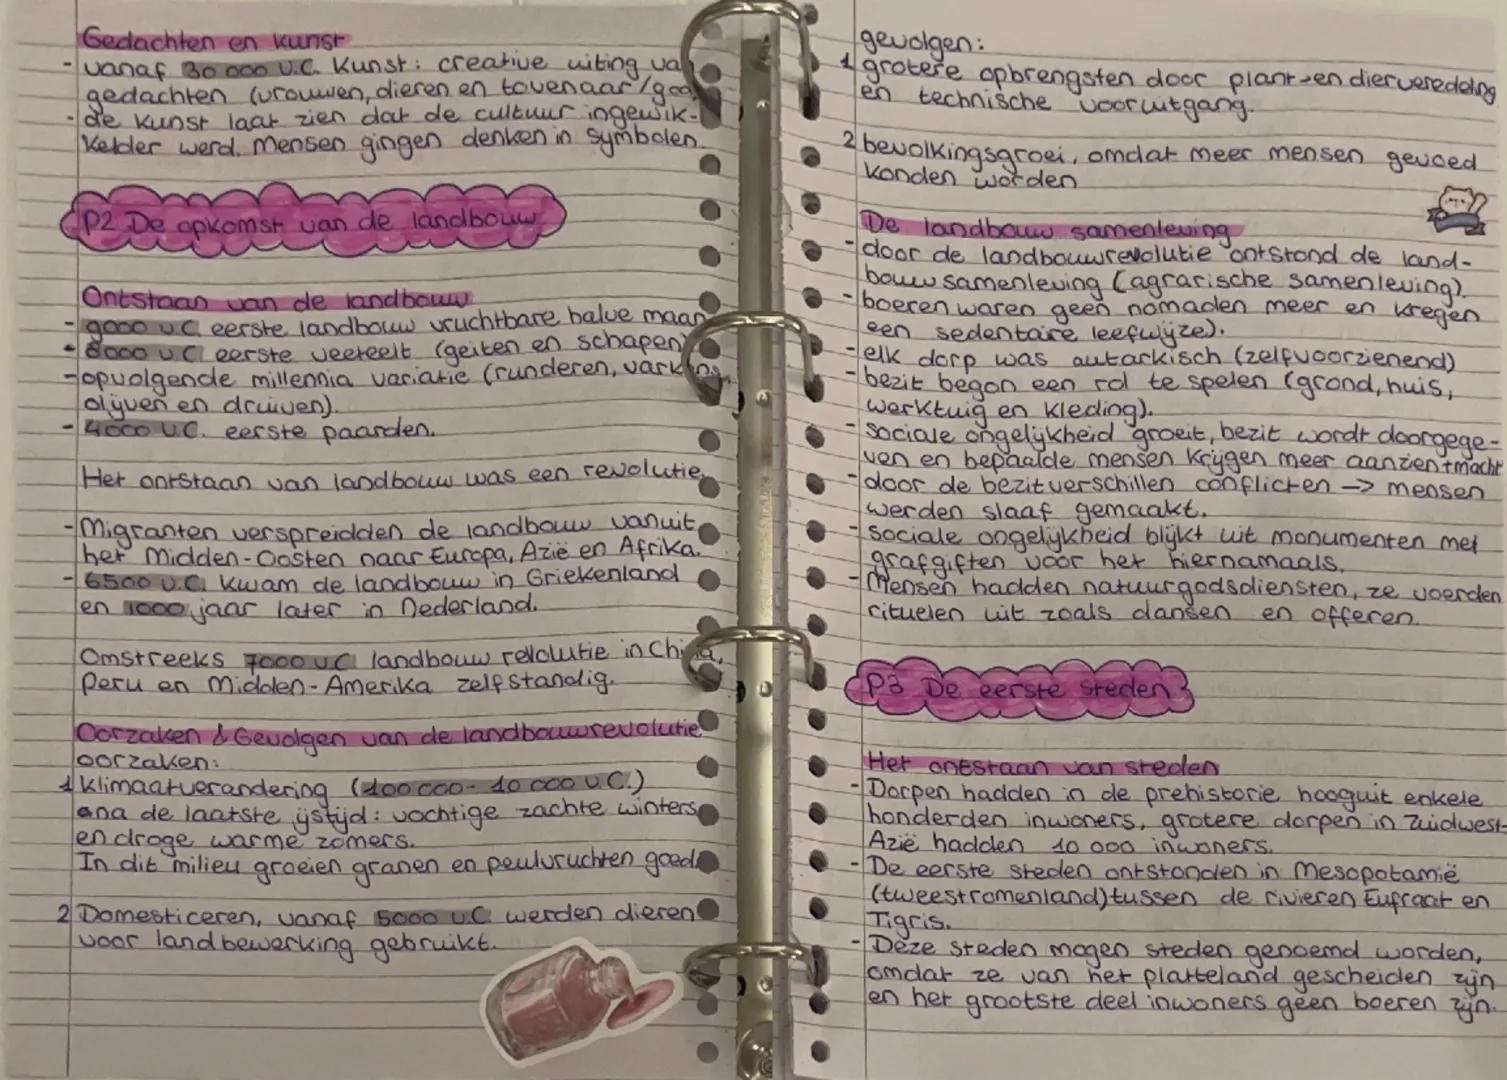 Gedachten en kunst
- vanaf 30 000 v.C. kunst: creative uiting van
gedachten (vrouwen, dieren en tovenaar/god
- de kunst laat zien dat de cultuur ingewik-
kelder werd. Mensen gingen denken in symbolen.
P2 De opkomst van de landbouw
Ontstaan van de landbouw
- 9000 v.C. eerste landbouw vruchtbare halve maan
- 8000 v.C. eerste veeteelt (geiten en schapen)
- opvolgende millennia variatie (runderen, varkens,
olijven en druiven).
- 4000 v.C. eerste paarden.
Het ontstaan van landbouw was een revolutie.
- Migranten verspreidden de landbouw vanuit
het Midden-Oosten naar Europa, Azië en Afrika.
- 6500 v.C. kwam de landbouw in Griekenland
en 1000 jaar later in Nederland.
Omstreeks 7000 v.C. landbouw revolutie in China,
Peru en Midden-Amerika zelfstandig.
Oorzaken & Gevolgen van de landbouwrevolutie
oorzaken:
1 klimaatverandering (100 000 - 10 000 v.C.)
ana de laatste ijstijd: vochtige zachte winters
en droge warme zomers.
In dit milieu groeien granen en peulvruchten goed.
2 Domesticeren, vanaf 5000 v.C. werden dieren
voor landbewerking gebruikt.
gevolgen:
1 grotere opbrengsten door plant- en dierveredeling
en technische vooruitgang.
2 bevolkingsgroei, omdat meer mensen gevoed
konden worden
De landbouw samenleving
- door de landbouwrevolutie ontstond de land-
bouw samenleving (agrarische samenleving).
- boeren waren geen nomaden meer en kregen
een sedentaire leefwijze).
- elk dorp was autarkisch (zelfvoorzienend)
- bezit begon een rol te spelen (grond, huis,
werktuig en kleding).
- sociale ongelijkheid groeit, bezit wordt doorgege-
ven en bepaalde mensen krijgen meer aanzien + macht
- door de bezitverschillen conflicten → mensen
werden slaaf gemaakt.
- sociale ongelijkheid blijkt uit monumenten met
grafgiften voor het hiernamaals.
- Mensen hadden natuurgodsdiensten, ze voerden
rituelen uit zoals dansen en offeren.
P3 De eerste steden
Het ontstaan van steden
- Dorpen hadden in de prehistorie hooguit enkele
honderden inwoners, grotere dorpen in Zuidwest-
Azië hadden 10 000 inwoners.
- De eerste steden ontstonden in Mesopotamië
(tweestromenland) tussen de rivieren Eufraat en
Tigris.
- Deze steden mogen steden genoemd worden,
omdat ze van het platteland gescheiden zijn
en het grootste deel inwoners geen boeren zijn.